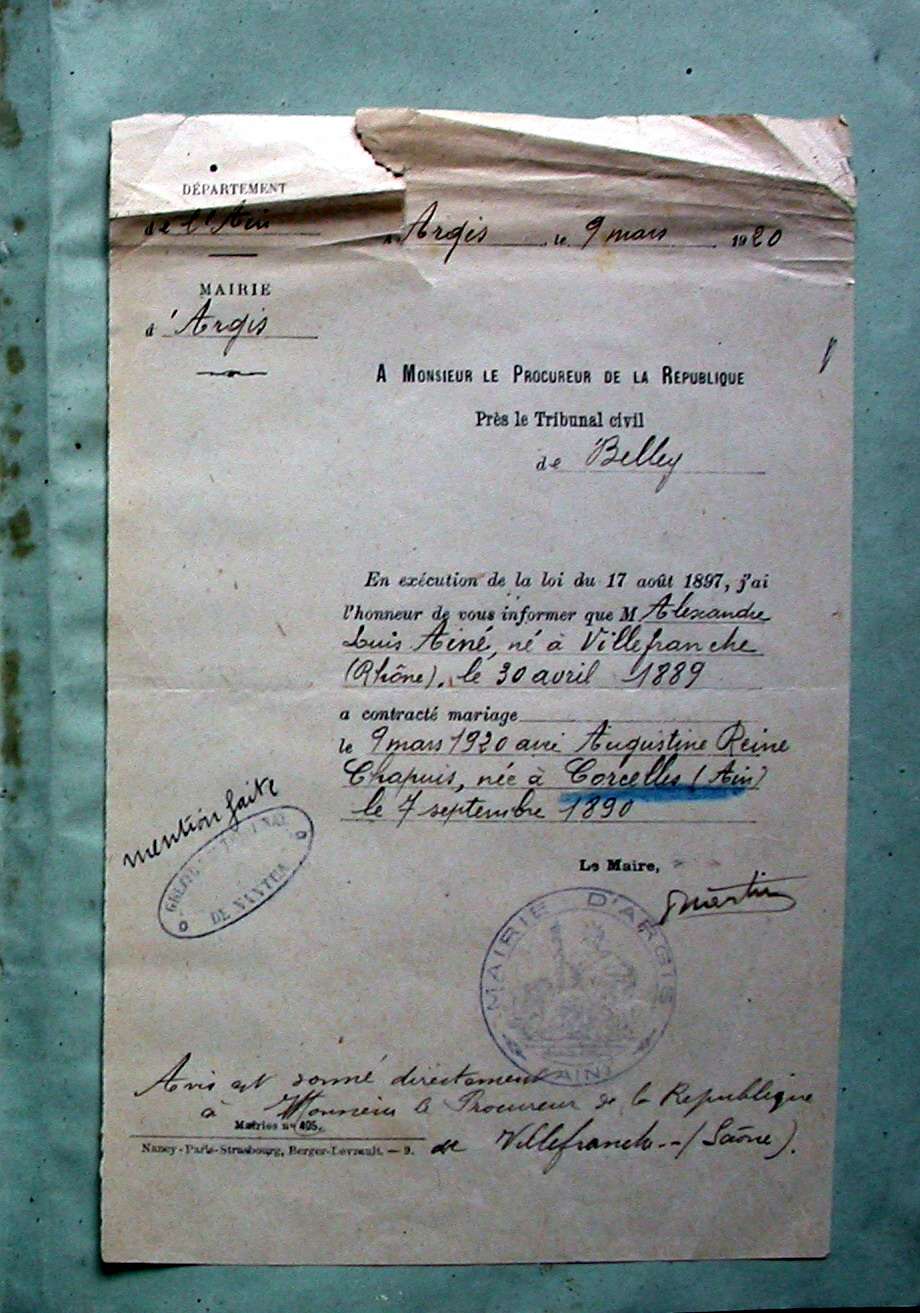 DÉPARTEMENT
de l'Ain
à Argis le 9 mars 1920
MAIRIE
d'Argis
A MONSIEUR LE PROCUREUR DE LA RÉPUBLIQUE
Près le Tribunal civil
de Belley
En exécution de la loi du 17 août 1897, j'ai
l'honneur de vous informer que M Alexandre
Louis Ainé, né à Villefranche
(Rhône), le 30 avril 1889
a contracté mariage
le 9 mars 1920 avec Augustine Reine
Chapuis, née à Corcelles (Ain)
le 7 septembre 1890
mention faite
DE NANTUA
Le Maire,
Martin
MAIRIE D'ARGIS
(AIN)
Avis est donné directement
à Monsieur le Procureur de la Republique
Mairies n° 405.
de Villefranche (Saône).
Nancy-Paris-Strasbourg, Berger-Levrault. — 9.